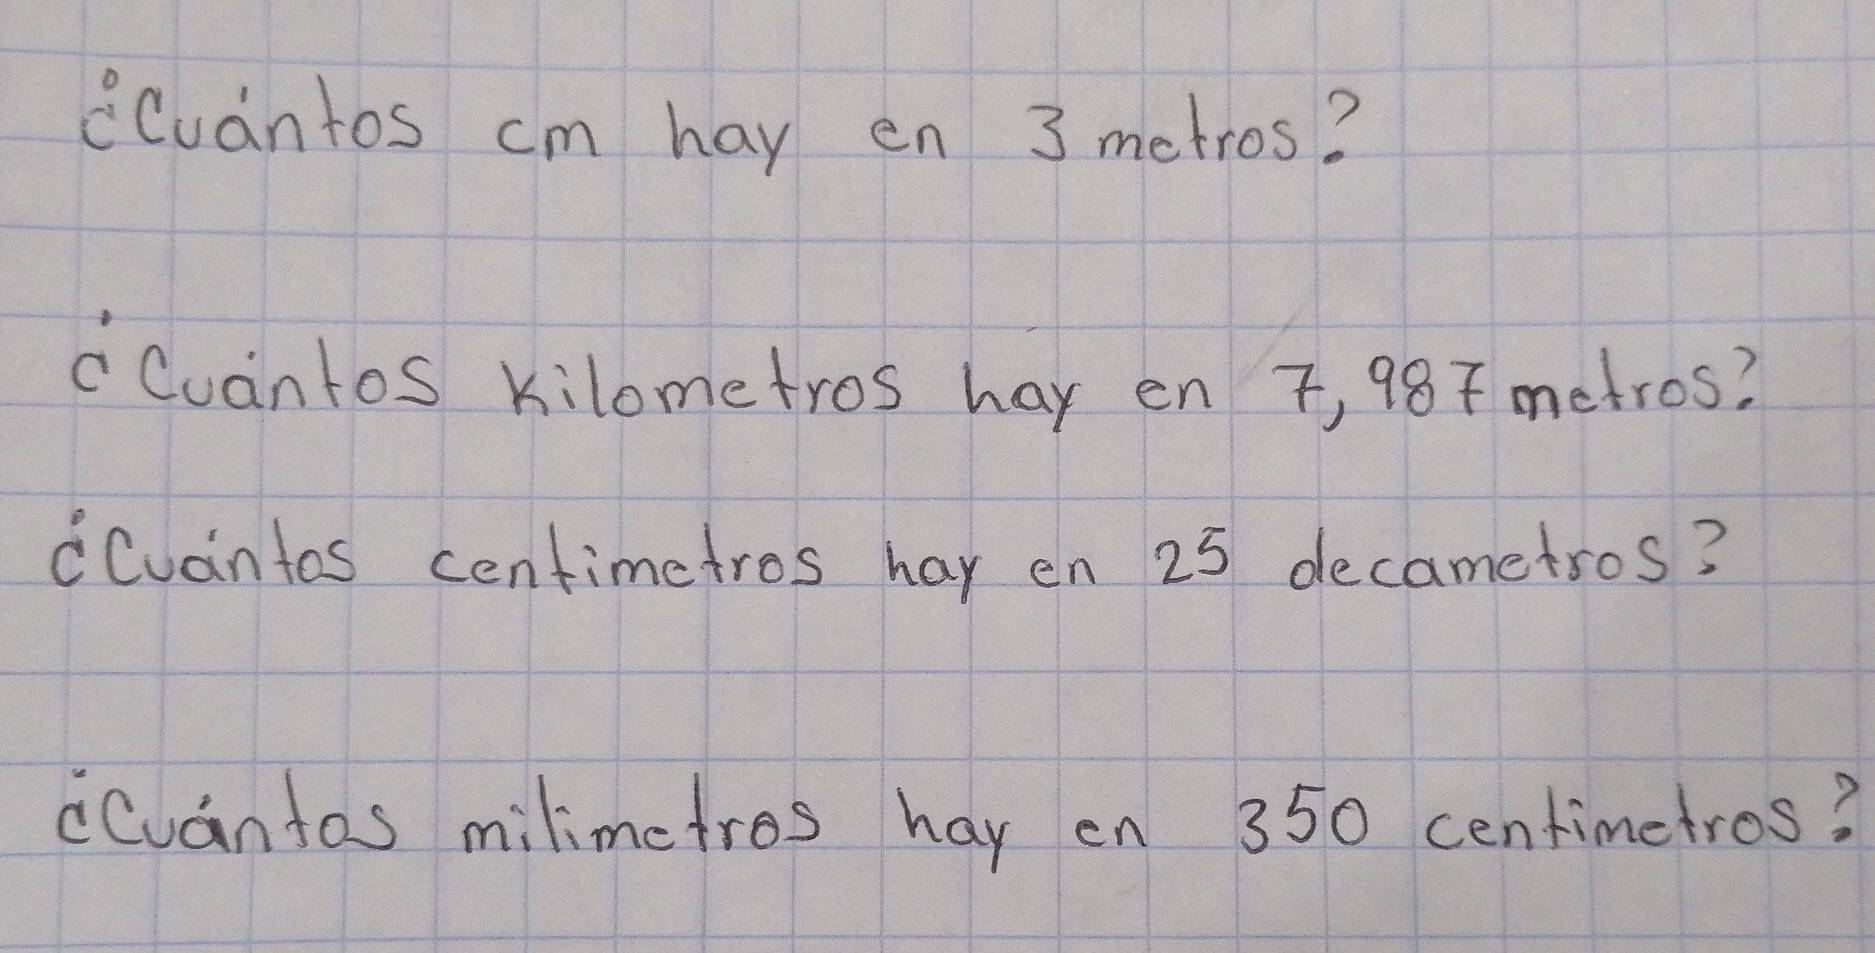 ¿Cuántos cm hay en 3 metros?
¿Cuántos Kilometros hay en 7,987 metros?
¿Cuántos centimetros hay en 25 decametros?
¿Cuántos milimetros hay en 350 centimetros?